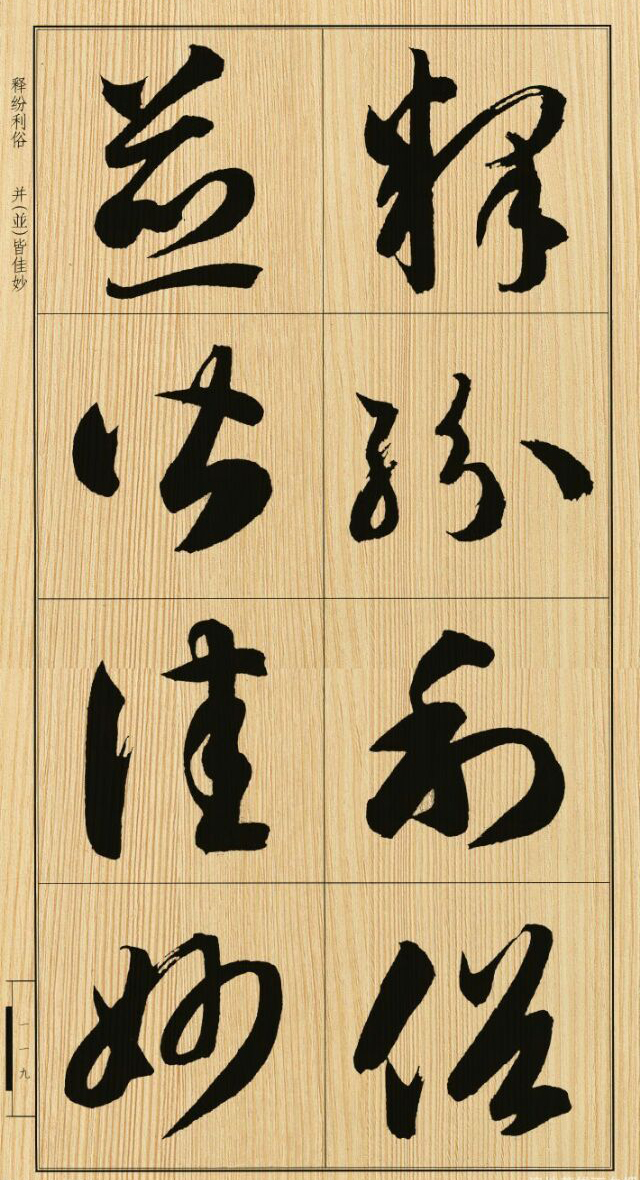 釋紛利俗
並皆佳妙
释纷利俗 并(並)皆佳妙
一一九